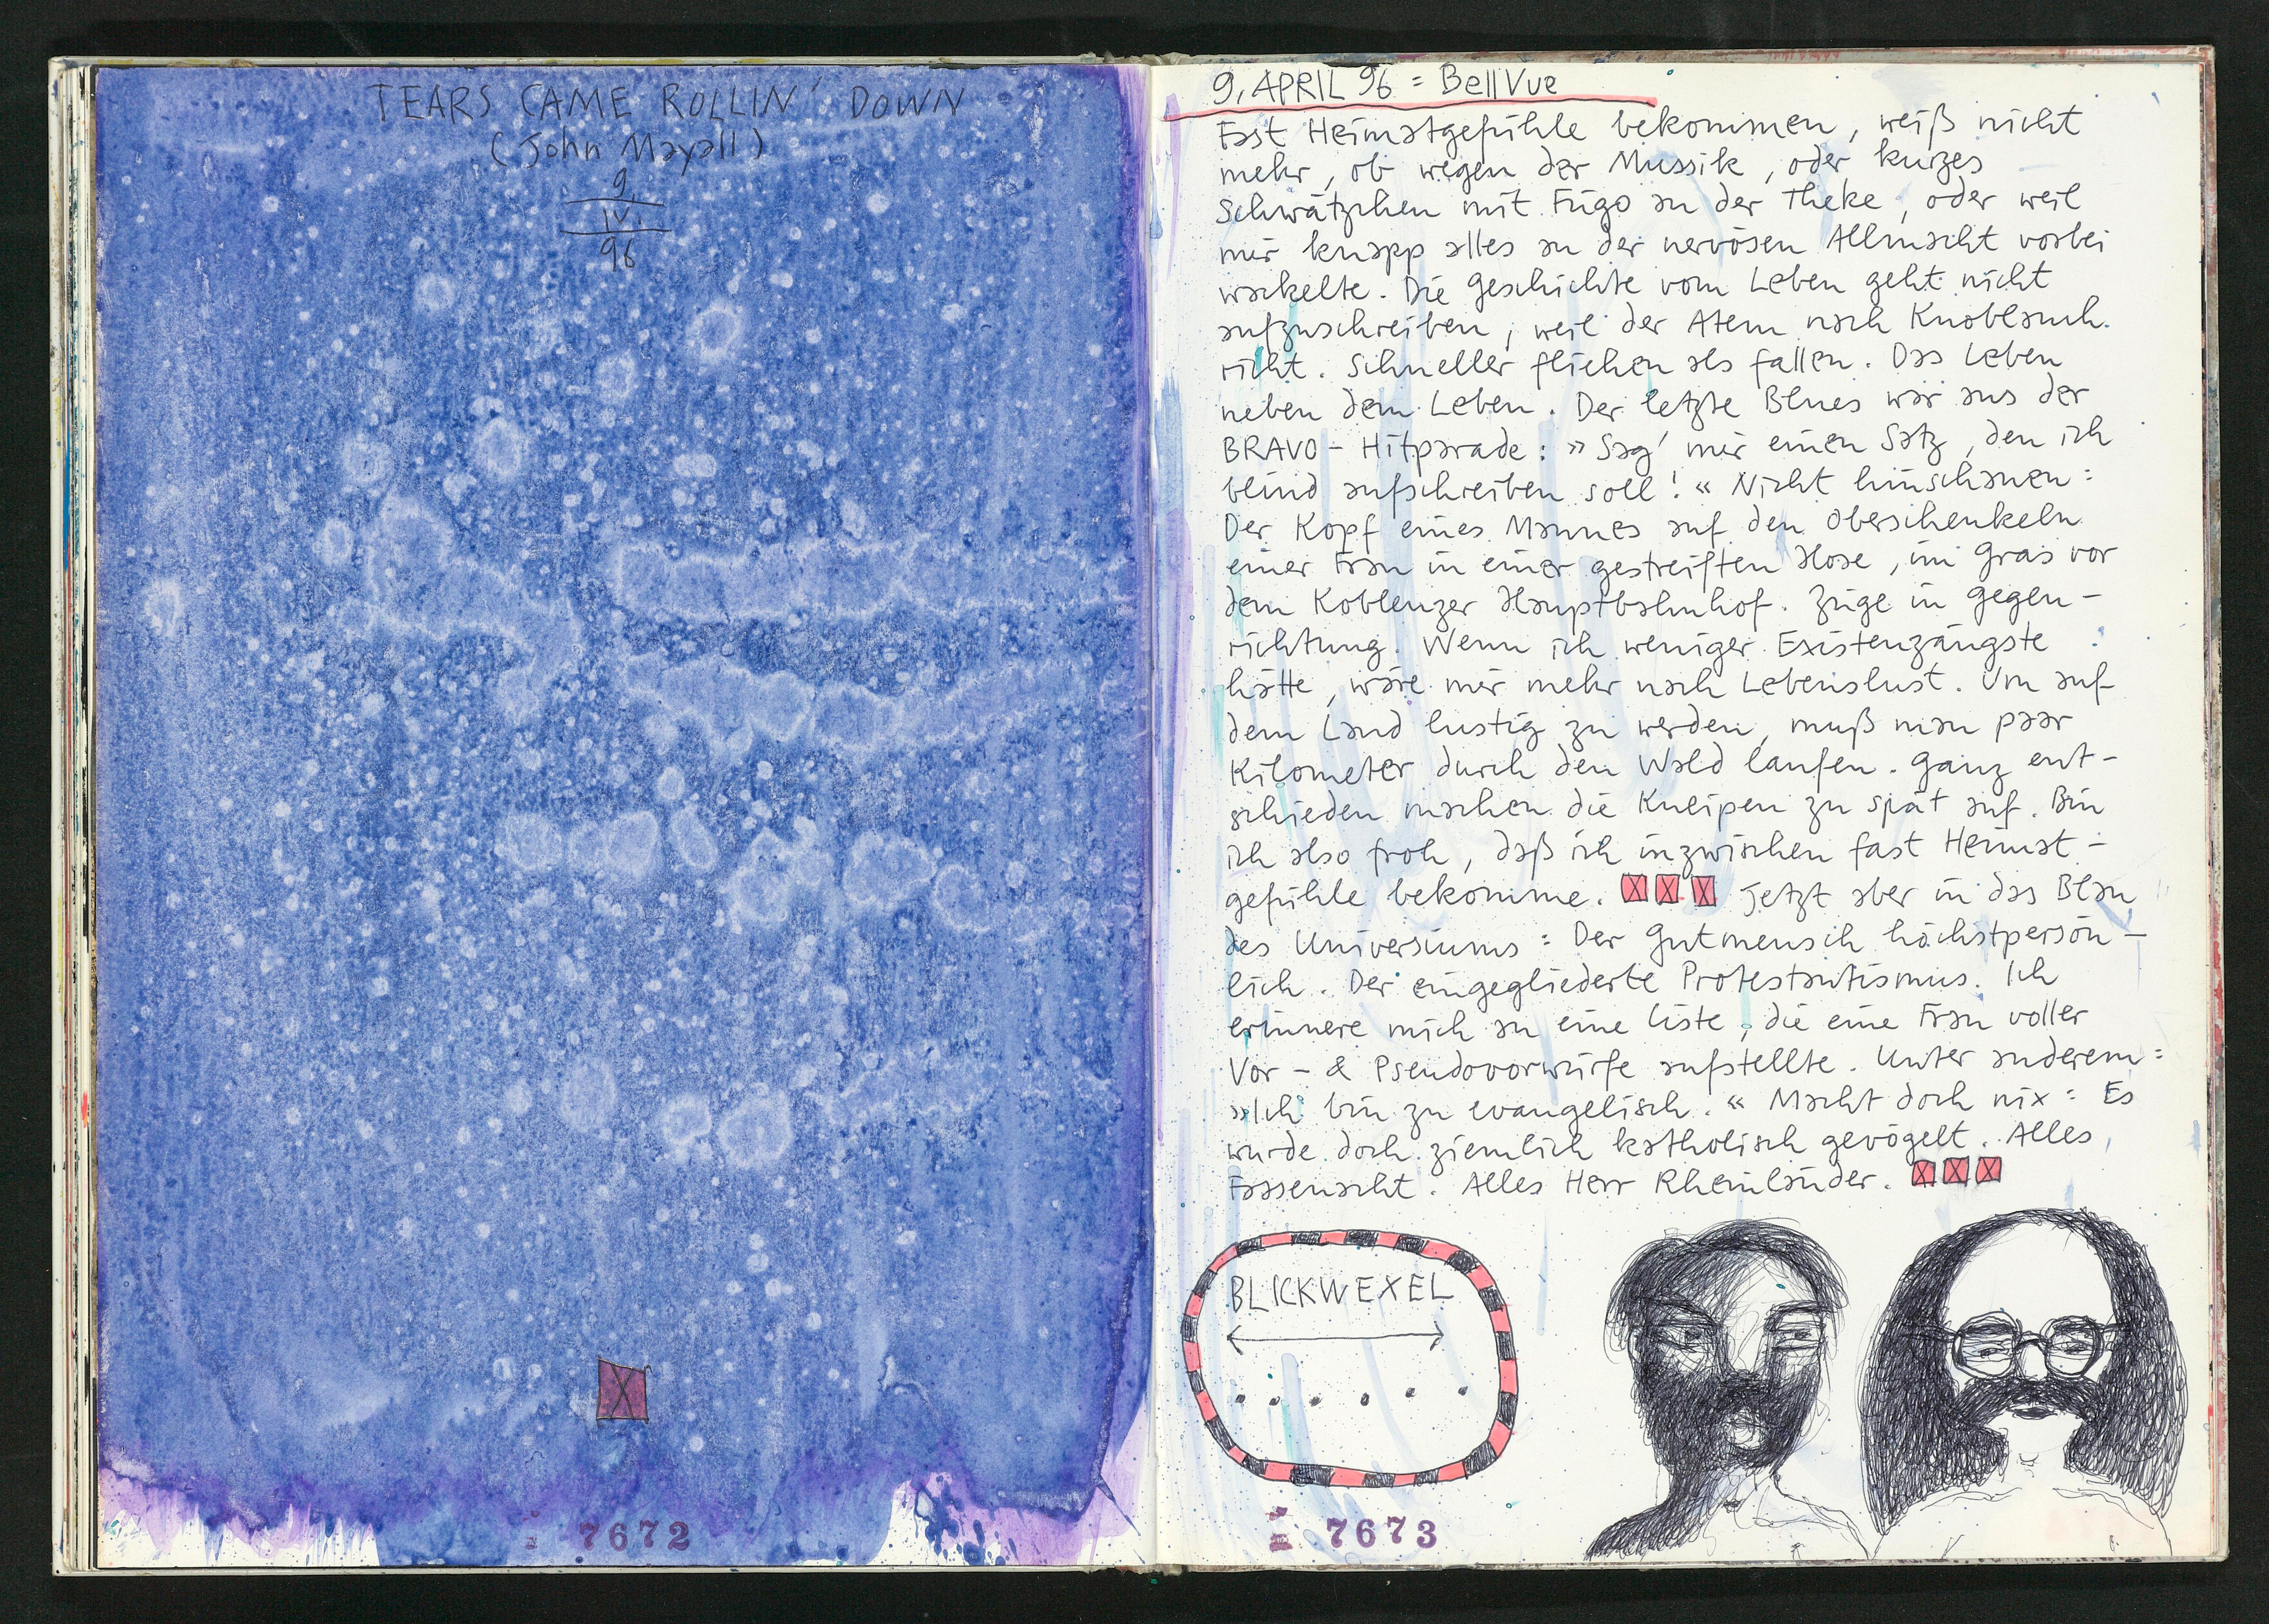 TEARS CAME ROLLIN' DOWN
(John Mayall)
9.
IV.
96
7672
9. APRIL 96 = BellVue
Fast Heimatgefühle bekommen, weiß nicht
mehr, ob wegen der Mussik, oder kurzes
Schwätzchen mit Fugo an der Theke, oder weil
mir knapp alles an der nervösen Allmacht vorbei
wackelte. Die Geschichte vom Leben geht nicht
aufzuschreiben, weil der Atem nach Knoblauch
richt. Schneller fliehen als fallen. Das Leben
neben dem Leben. Der letzte Blues war aus der
BRAVO-Hitparade: »Sag' mir einen Satz, den ich
blind aufschreiben soll!« Nicht hinschauen:
Der Kopf eines Mannes auf den Oberschenkeln
einer Frau in einer gestreiften Hose, im Gras vor
dem Koblenzer Hauptbahnhof. Züge in Gegen-
richtung. Wenn ich weniger Existenzängste
hätte, wäre mir mehr nach Lebenslust. Um auf
dem Land lustig zu werden, muß man paar
Kilometer durch den Wald laufen. Ganz ent-
schieden machen die Kneipen zu spät auf. Bin
ich also froh, daß ich inzwischen fast Heimat-
gefühle bekomme. Jetzt aber in das Blau
des Universiums: Der Gutmensch höchstpersön-
lich. Der eingegliederte Protestantismus. Ich
erinnere mich an eine Liste, die eine Frau voller
Vor- & Pseudovorwürfe aufstellte. Unter anderem:
»Ich bin zu evangelisch.« Macht doch nix: Es
wurde doch ziemlich katholisch gevögelt. Alles
Fassenacht. Alles Herr Rheinländer.
BLICKWEXEL
7673